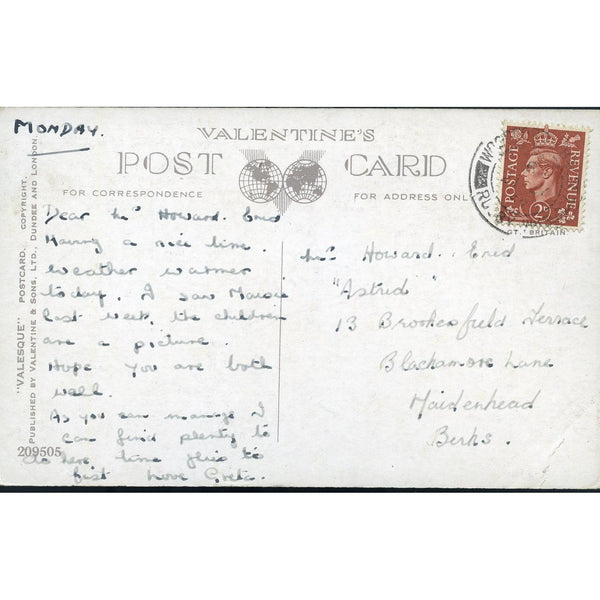 MONDAY.
VALENTINE'S
POST CARD
FOR CORRESPONDENCE
FOR ADDRESS ONLY
Dear Mrs Howard. Enid
Having a nice time.
weather warmer
today. I saw Maisie
last week, the children
are a picture.
Hope you are both
well.
As you can manage I
can find plenty to
do here time flies to
fast Love Greta.
Mrs Howard. Enid
"Astrid"
13 Brookesfield Terrace
Blackamore Lane
Maidenhead
Berks.
POSTAGE REVENUE
2D
GT. BRITAIN
"VALESQUE" POSTCARD. COPYRIGHT.
PUBLISHED BY VALENTINE & SONS, LTD., DUNDEE AND LONDON.
209505